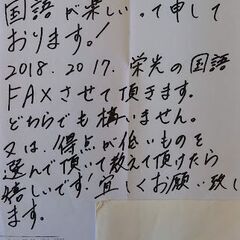 国語が楽しいって申して
おります!
2018.2017.栄光の国語
FAXさせて頂きます。
どちらでも構いません。
又は、得点が低いものを
選んで頂いて教えて頂けたら
嬉しいです!宜しくお願い致し
ます。